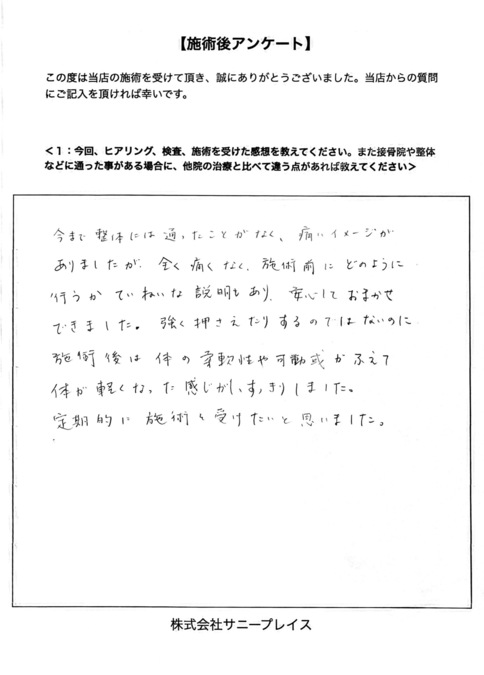 【施術後アンケート】
この度は当店の施術を受けて頂き、誠にありがとうございました。当店からの質問
にご記入を頂ければ幸いです。
＜１：今回、ヒアリング、検査、施術を受けた感想を教えてください。また接骨院や整体
などに通った事がある場合に、他院の治療と比べて違う点があれば教えてください＞
今まで整体には通ったことがなく、痛いイメージが
ありましたが、全く痛くなく、施術前にどのように
行うかていねいな説明もあり、安心しておまかせ
できました。強く押さえたりするのではないのに
施術後は体の柔軟性や可動域がふえて
体が軽くなった感じがし、すっきりしました。
定期的に施術を受けたいと思いました。
株式会社サニープレイス